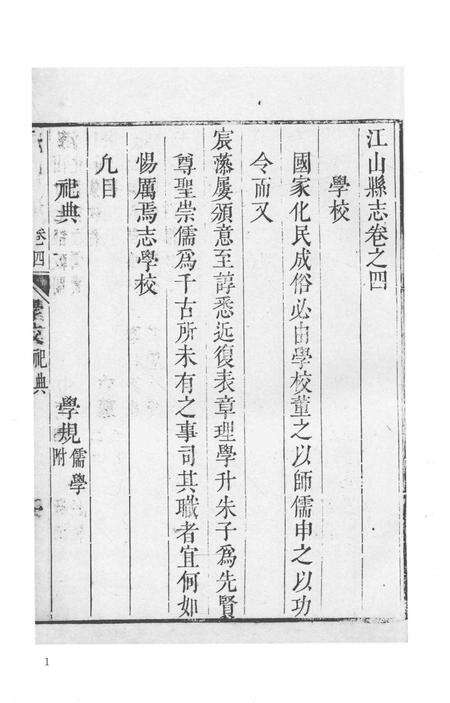 江山縣志卷之四
學校
國家化民成俗必由學校董之以師儒申之以功
令而又
宸藻屢頒意至諄悉近復表章理學升朱子爲先賢
尊聖崇儒爲千古所未有之事司其職者宜何如
惕厲焉志學校
九目
祀典 學規 儒學附
卷四 學校 祀典
1